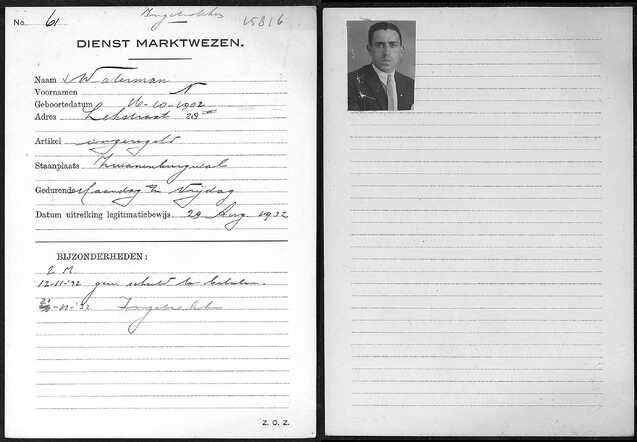 No. 61 Ingetrokken 15816
DIENST MARKTWEZEN.
Naam Waterman
Voornamen N
Geboortedatum 16-10-1902
Adres Lekstraat 28
Artikel ongeregeld
Staanplaats Zwanenburgwal
Gedurende Maandag en Vrijdag
Datum uitreiking legitimatiebewijs 29 Aug. 1932
BIJZONDERHEDEN:
2 M
12-11-'32 geen schuld te betalen.
-11-'32 Ingetrokken
Z. O. Z.